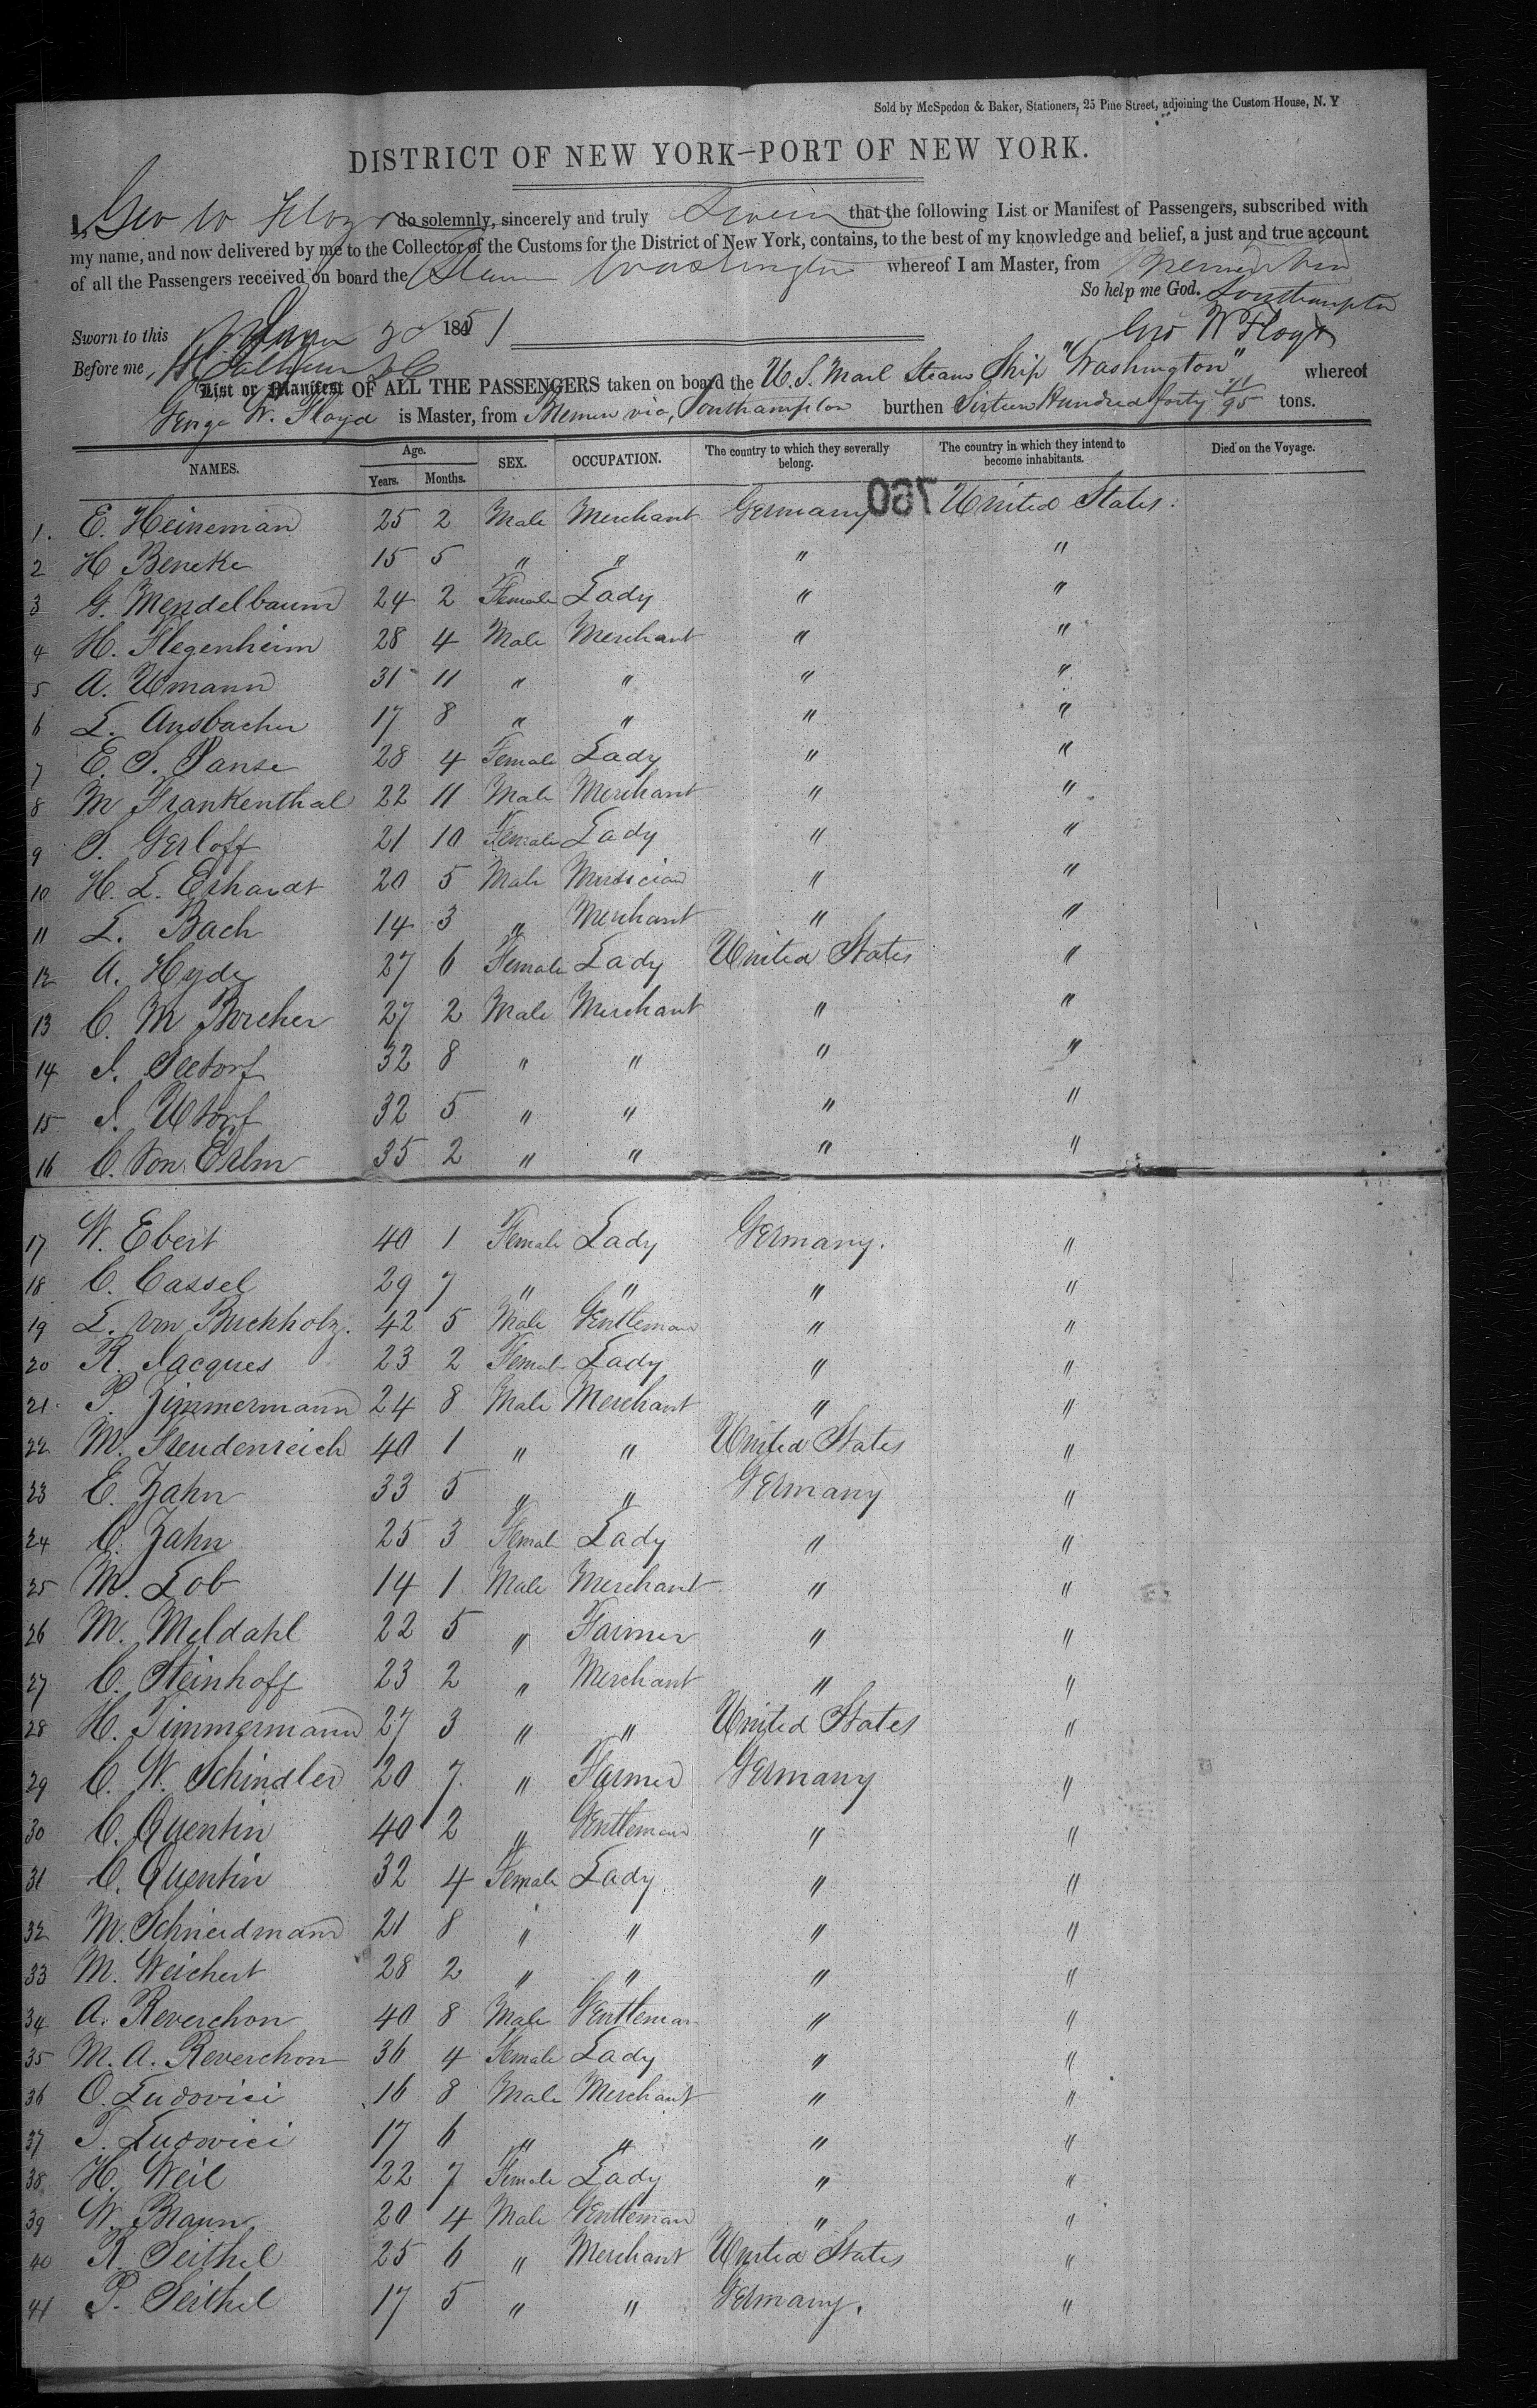 Sold by McSpedon & Baker, Stationers, 25 Pine Street, adjoining the Custom House, N. Y
DISTRICT OF NEW YORK—PORT OF NEW YORK.
I, Geo W Floyd do solemnly, sincerely and truly Swear that the following List or Manifest of Passengers, subscribed with
my name, and now delivered by me to the Collector of the Customs for the District of New York, contains, to the best of my knowledge and belief, a just and true account
of all the Passengers received on board the Steam Washington whereof I am Master, from Bremen via
So help me God. Southampton
Sworn to this 1851
Geo W Floyd
Before me,
List or Manifest OF ALL THE PASSENGERS taken on board the U. S. Mail Steam Ship "Washington" whereof
George W. Floyd is Master, from Bremen via, Southampton burthen Sixteen Hundred forty /95 tons.
NAMES. Age. Years. Months. SEX. OCCUPATION. The country to which they severally belong. The country in which they intend to become inhabitants. Died on the Voyage.
760
1. E. Heineman 25 2 Male Merchant Germany United States.
2 H Beneke 15 5 " " " "
3 G. Mendelbaum 24 2 Female Lady " "
4 H. Flegenheim 28 4 Male Merchant " "
5 A. Umann 31 11 " " " "
6 L. Ansbacher 17 8 " " " "
7 E. S. Panse 28 4 Female Lady " "
8 M Frankenthal 22 11 Male Merchant " "
9 S. Gerloff 21 10 Female Lady " "
10 H. L. Erhardt 20 5 Male Musician " "
11 L. Bach 14 3 " Merchant " "
12 A. Hyde 27 6 Female Lady United States "
13 C. M Borcher 27 2 Male Merchant " "
14 J. Seetorf 32 8 " " " "
15 J. Utorf 32 5 " " " "
16 C. Von 35 2 " " " "
17 W. Ebert 40 1 Female Lady Germany. "
18 C. Cassel 29 7 " " " "
19 L. von Buchholz. 42 5 Male Gentleman " "
20 R. Jacques 23 2 Female Lady " "
21. P. Zimmermann 24 8 Male Merchant " "
22 M. Freudenreich 40 1 " " United States "
23 E. Zahn 33 5 " " Germany "
24 C. Zahn 25 3 Female Lady " "
25 M. Lob 14 1 Male Merchant " "
26 M. Meldahl 22 5 " Farmer " "
27 C. Steinhoff 23 2 " Merchant " "
28 H. Timmermann 27 3 " " United States "
29 C. W. Schindler 20 7. " Farmer Germany "
30 C. Quentin 40 2 " Gentleman " "
31 C. Quentin 32 4 Female Lady " "
32 M. Schneidmann 21 8 " " " "
33 M. Weichert 28 2 " " " "
34 A. Reverchon 40 8 Male Gentleman " "
35 M. A. Reverchon 36 4 Female Lady " "
36 O. Ludovici 16 8 Male Merchant " "
37 T. Ludovici 17 6 " " " "
38 H. Weil 22 7 Female Lady " "
39 W. Braun 20 4 Male Gentleman " "
40 R. Seithel 25 6 " Merchant United States "
41 P. Seithel 17 5 " " Germany. "